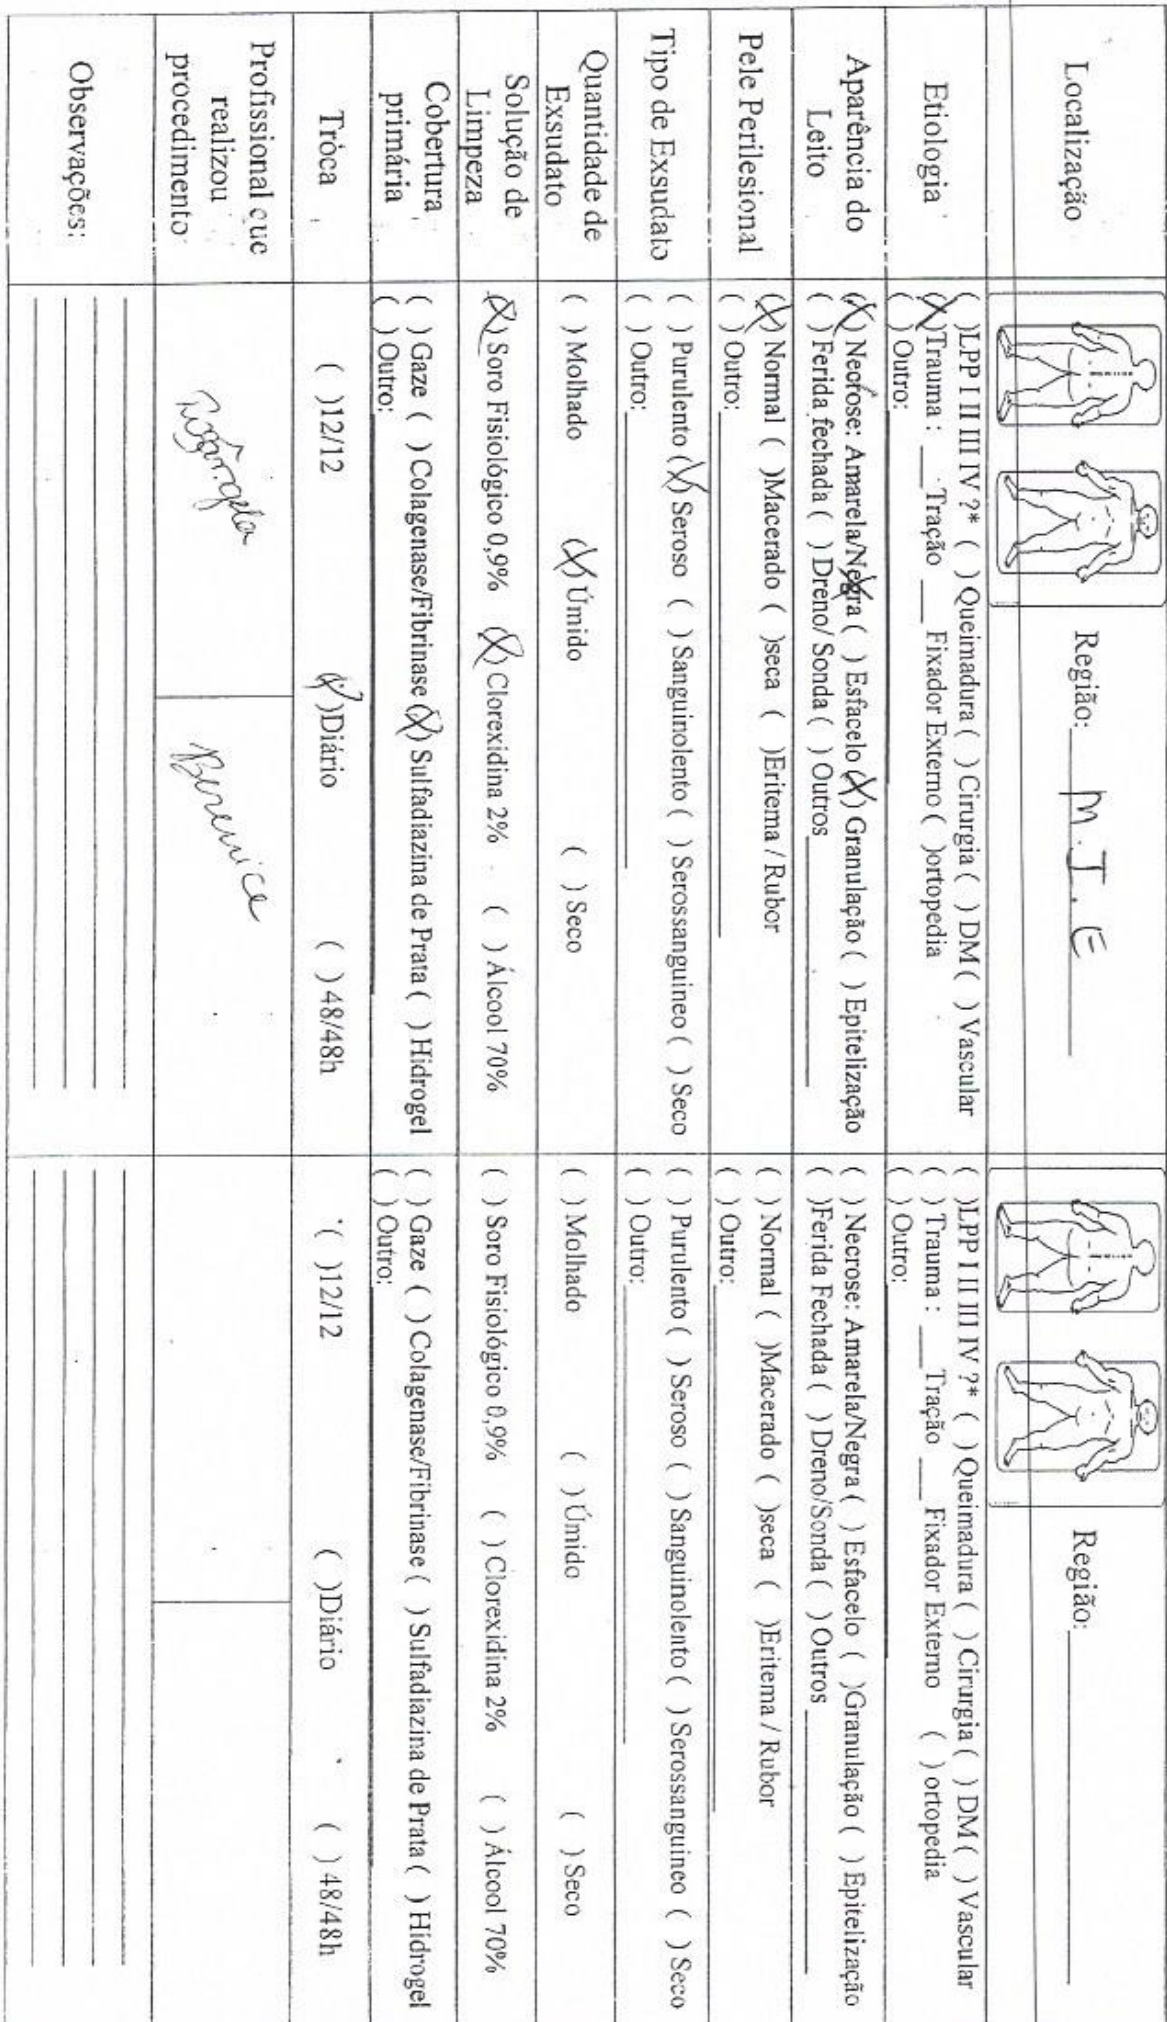 Localização
Região: M.I.E
Região:
Etiologia
( )LPP I II III IV ?* ( )Queimadura ( ) Cirurgia ( ) DM ( ) Vascular
(X)Trauma : ___ Tração ___ Fixador Externo ( )ortopedia
( ) Outro:
( )LPP I II III IV ?* ( )Queimadura ( ) Cirurgia ( ) DM ( ) Vascular
( ) Trauma : ___ Tração ___ Fixador Externo ( ) ortopedia
( ) Outro:
Aparência do
Leito
(X) Necrose: Amarela/Negra ( ) Esfacelo (X) Granulação ( ) Epitelização
( ) Ferida fechada ( ) Dreno/ Sonda ( ) Outros
( ) Necrose: Amarela/Negra ( ) Esfacelo ( )Granulação ( ) Epitelização
( )Ferida Fechada ( ) Dreno/Sonda ( ) Outros
Pele Perilesional
(X) Normal ( )Macerado ( )seca ( )Eritema / Rubor
( ) Outro:
( ) Normal ( )Macerado ( )seca ( )Eritema / Rubor
( ) Outro:
Tipo de Exsudato
( ) Purulento (X) Seroso ( ) Sanguinolento ( ) Serossanguineo ( ) Seco
( ) Outro:
( ) Purulento ( ) Seroso ( ) Sanguinolento ( ) Serossanguineo ( ) Seco
( ) Outro:
Quantidade de
Exsudato
( ) Molhado (X) Úmido ( ) Seco
( ) Molhado ( ) Úmido ( ) Seco
Solução de
Limpeza
(X) Soro Fisiológico 0,9% (X) Clorexidina 2% ( ) Álcool 70%
( ) Soro Fisiológico 0,9% ( ) Clorexidina 2% ( ) Álcool 70%
Cobertura
primária
( ) Gaze ( ) Colagenase/Fibrinase (X) Sulfadiazina de Prata ( ) Hidrogel
( ) Outro:
( ) Gaze ( ) Colagenase/Fibrinase ( ) Sulfadiazina de Prata ( ) Hidrogel
( ) Outro:
Troca
( )12/12 (X)Diário ( ) 48/48h
( )12/12 ( )Diário ( ) 48/48h
Profissional que
realizou
procedimento
Berenice
Observações: